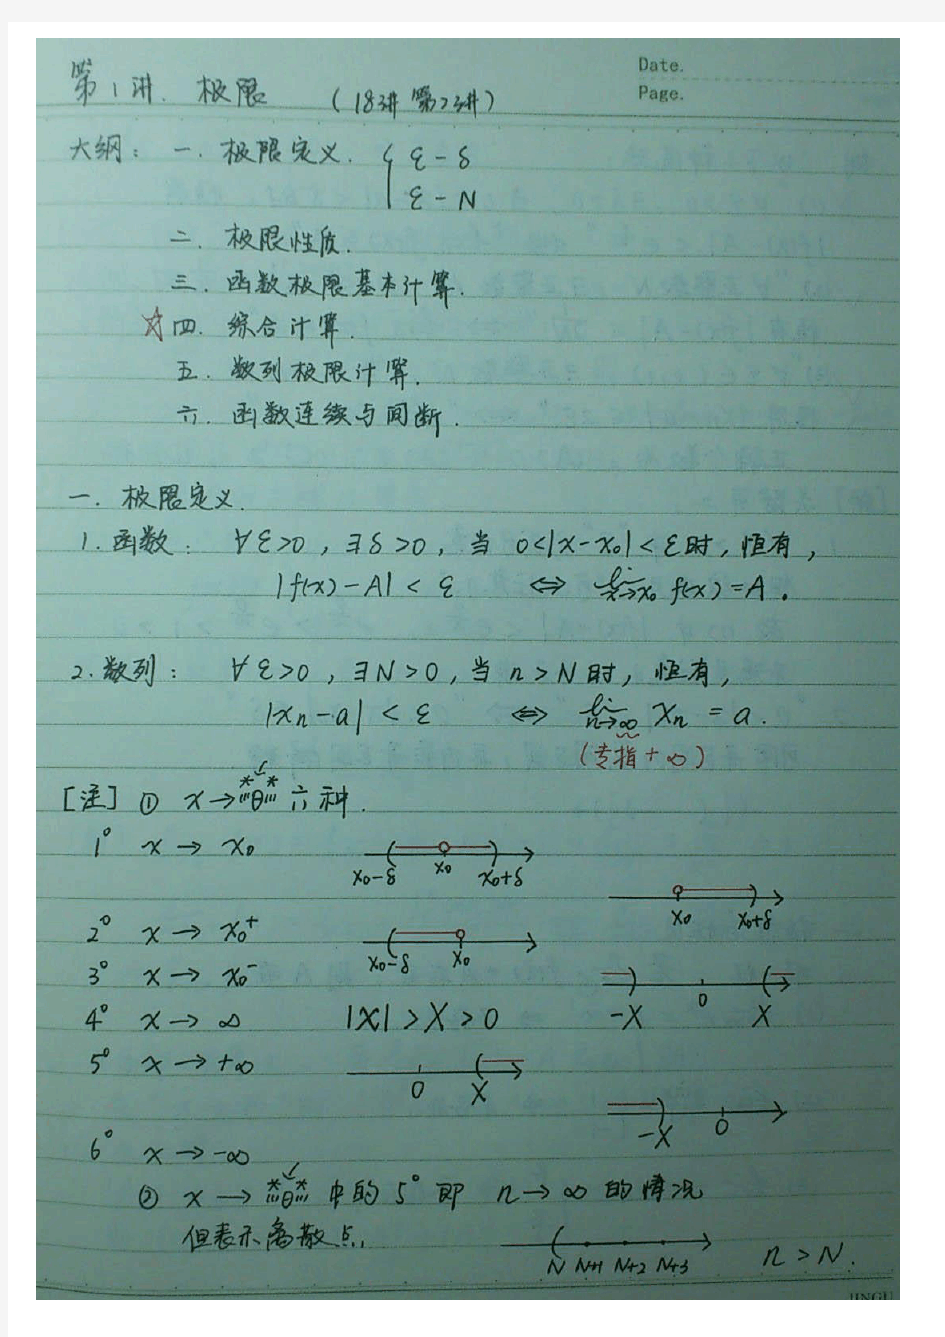 Date.
Page.
第1讲. 极限 (18讲第2讲)
大纲: 一. 极限定义. { ε-δ
ε-N
二. 极限性质.
三. 函数极限基本计算.
☆四. 综合计算.
五. 数列极限计算.
六. 函数连续与间断.
一. 极限定义.
1. 函数: ∀ε>0, ∃δ>0, 当 0<|x-x₀|<ε时, 恒有,
|f(x)-A|<ε ⇔ lim x→x₀ f(x)=A.
2. 数列: ∀ε>0, ∃N>0, 当 n>N 时, 恒有,
|xₙ-a|<ε ⇔ lim n→∞ xₙ = a.
(专指+∞)
[注] ① x→ 六种.
1° x→x₀
x₀-δ x₀ x₀+δ
x₀ x₀+δ
2° x→x₀⁺
x₀-δ x₀
3° x→x₀⁻
-X 0 X
4° x→∞ |x|>X>0
5° x→+∞
0 X
-X 0
6° x→-∞
② x→ 中的5°即 n→∞的情况
但表示离散点.
N N+1 N+2 N+3 n>N.
JINGU